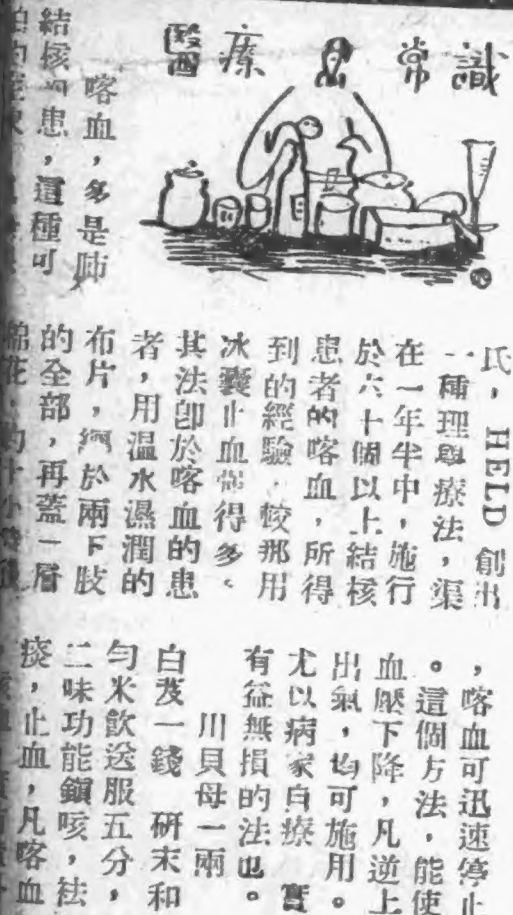 識常思療醫
喀血,多是肺
結核的患,這種可
氏,HELD 創出
一種理學療法,渠
在一年半中,施行
於六十個以上結核
患者的喀血,所得
到的經驗,較那用
冰囊止血強得多。
其法卽於喀血的患
者,用温水濕潤的
布片,縛於兩下肢
的全部,再蓋一層
棉花,約十小時
,喀血可迅速停止
。這個方法,能使
血壓下降,凡逆上
出氣,均可施用。
尤以病家自療 實
有益無損的法也。
川貝母一兩
白芨一錢 研末和
勻米飲送服五分,
二味功能鎮咳,祛
痰,止血,凡喀血